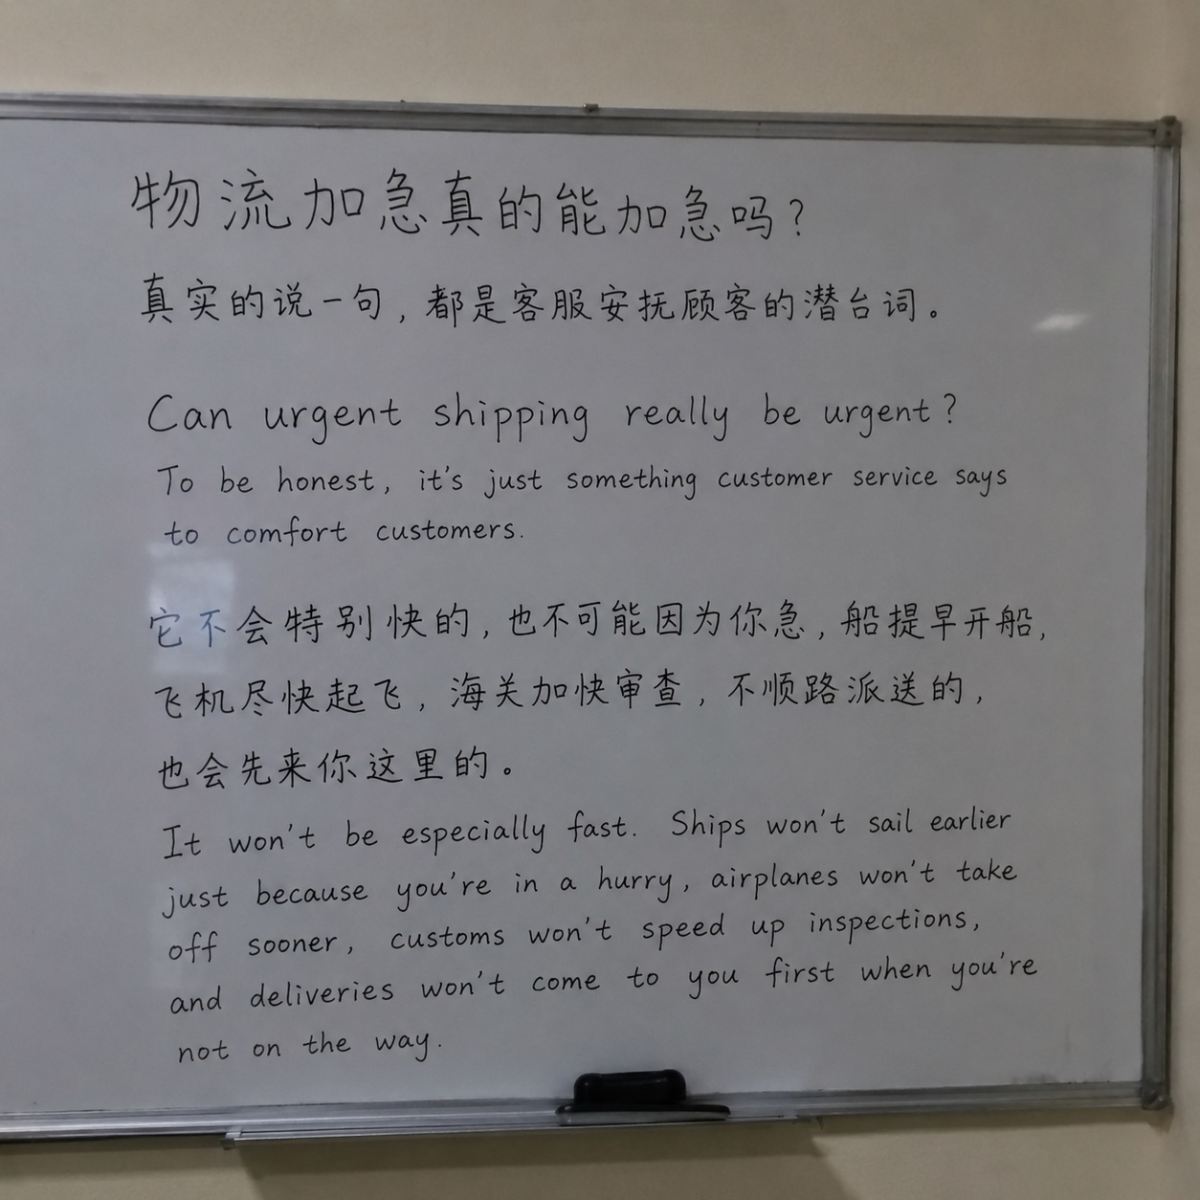 物流加急真的能加急吗?
真实的说一句,都是客服安抚顾客的潜台词。
Can urgent shipping really be urgent?
To be honest, it's just something customer service says
to comfort customers.
它不会特别快的,也不可能因为你急,船提早开船,
飞机尽快起飞,海关加快审查,不顺路派送的,
也会先来你这里的。
It won't be especially fast. Ships won't sail earlier
just because you're in a hurry, airplanes won't take
off sooner, customs won't speed up inspections,
and deliveries won't come to you first when you're
not on the way.